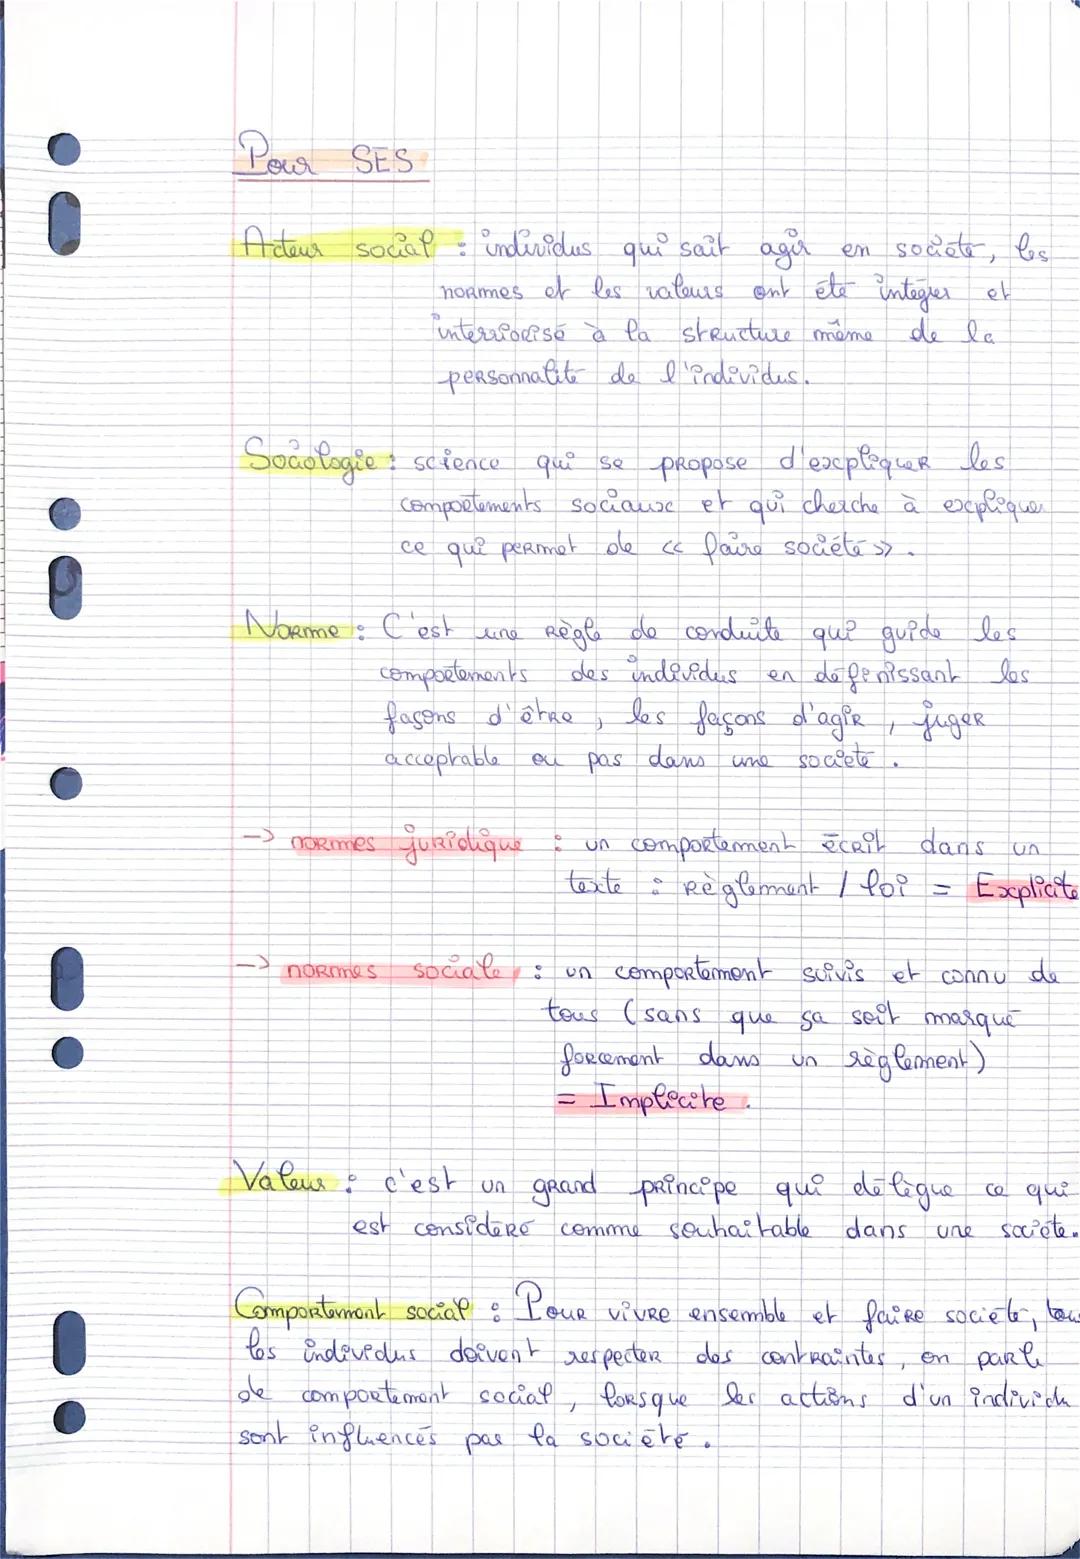 Pour SES
Acteur social : individus qui sait agir en société, les
normes et les valeurs ont été intégrer et
interriorisé à la structure même de la
personnalité de l'individus.
Sociologie : science qui se propose d'expliquer les
comportements sociaux et qui cherche à explique
ce qui permet de << faire société >>.
Norme : C'est une règle de conduite qui guide les
comportements des individus en définissant les
façons d'être, les façons d'agir, juger
acceptable ou pas dans une société.
-> normes juridique : un comportement écrit dans un
texte : règlement / loi = Explicite
-> normes sociale : un comportement suivis et connu de
tous (sans que sa soit marqué
forcement dans un règlement)
= Implicite.
Valeur : c'est un grand principe qui délègue ce qui
est considéré comme souhaitable dans une société.
Comportement social : Pour vivre ensemble et faire société, tous
les individus doivent respecter des contraintes, on parle
de comportement social, lorsque les actions d'un individu
sont influencés par la société.